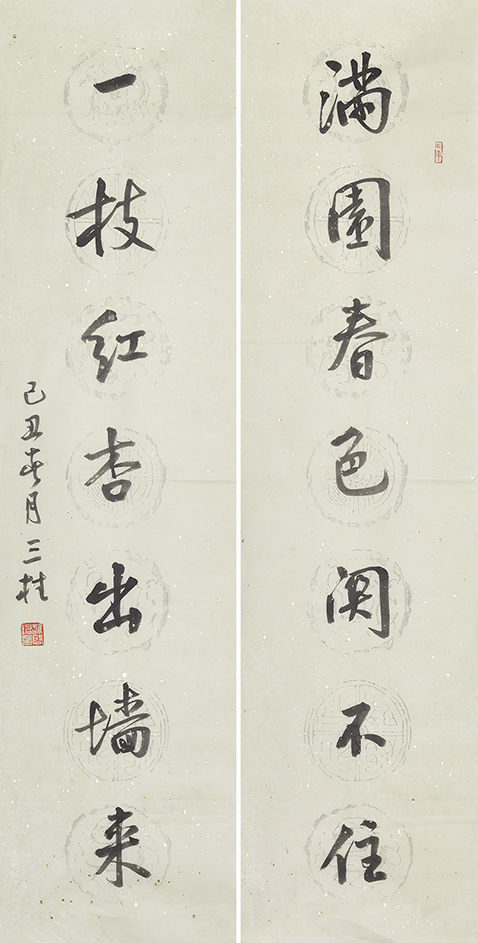 满園春色関不住
一枝红杏出墙来
己丑春月三桂